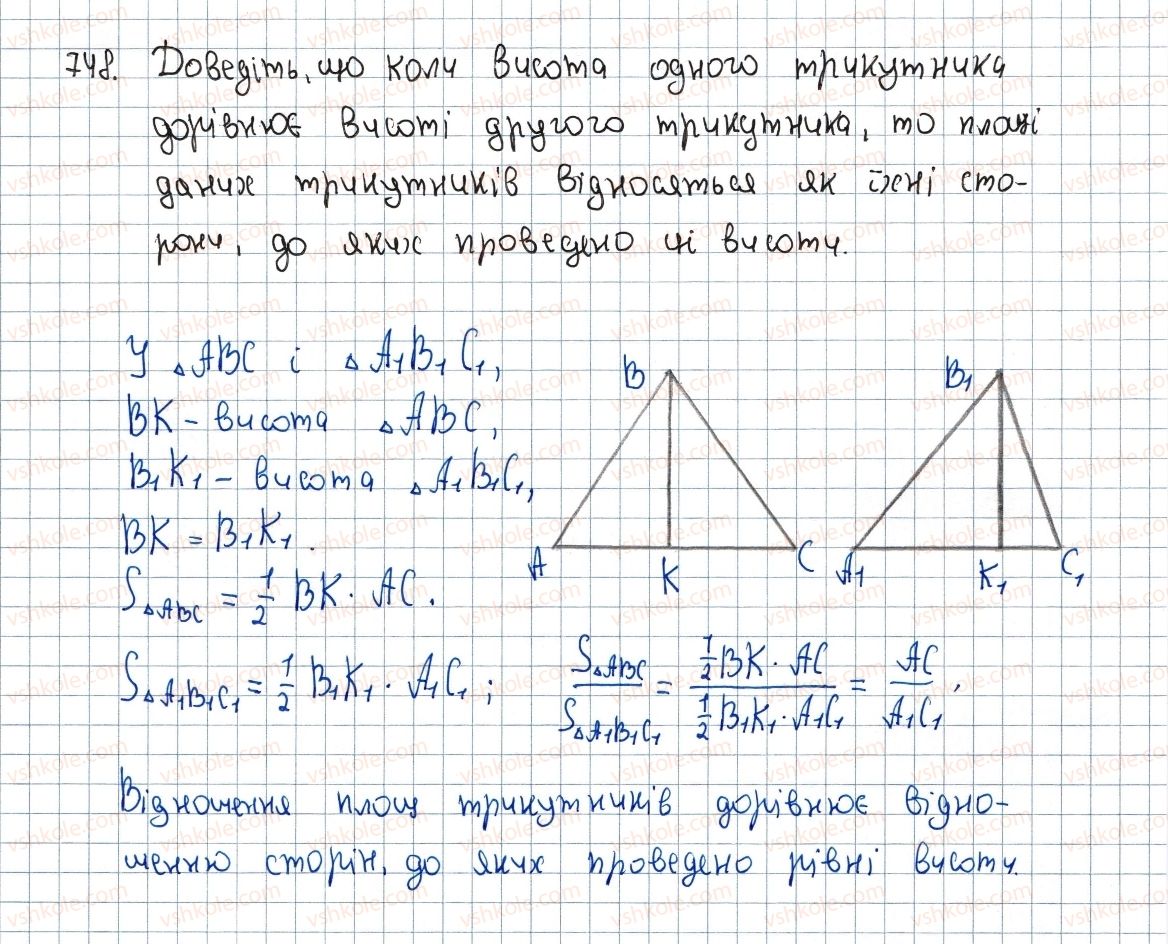 748. Доведіть, що коли висота одного трикутника
дорівнює висоті другого трикутника, то площі
даних трикутників відносяться як їхні сто-
рони, до яких проведено ці висоти.
У △ABC і △A₁B₁C₁,
BK - висота △ABC,
B₁K₁ - висота △A₁B₁C₁,
BK = B₁K₁.
B
B₁
A
K
C
A₁
K₁
C₁
S△ABC = 1/2 BK · AC.
S△A₁B₁C₁ = 1/2 B₁K₁ · A₁C₁; S△ABC / S△A₁B₁C₁ = (1/2 BK · AC) / (1/2 B₁K₁ · A₁C₁) = AC / A₁C₁.
Відношення площ трикутників дорівнює відно-
шенню сторін, до яких проведено рівні висоти.
vshkole.com